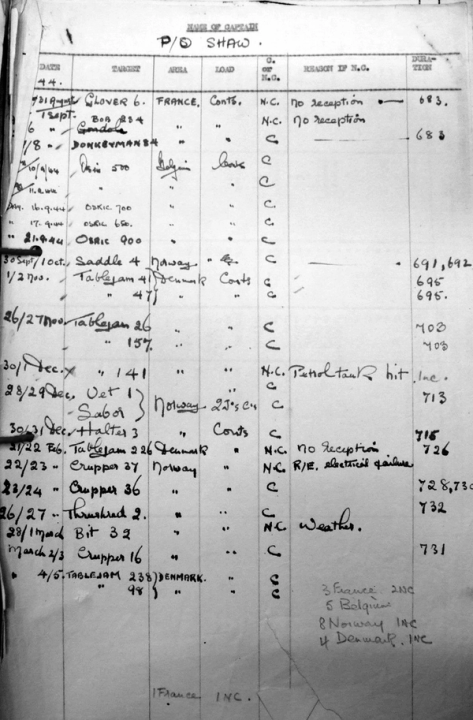 NAME OF CAPTAIN
P/O SHAW.
DATE TARGET AREA LOAD C. or N.C. REASON IF N.C. DURATION
44.
31 August GLOVER 6. FRANCE. Conts. N.C. No reception 683.
1 Sept. BOB 234 " " N.C. No reception
6 " Gondola
1/8 " DONKEYMAN 84 " " C 683
10/9/44 Osric 500 Belgium C
11.9.44 " " C
16.9.44 OSRIC 700 " " C
17.9.44 OSRIC 650. " " C
21.9.44 OSRIC 900 " " C
30 Sept/1 Oct. Saddle 4 Norway " C 691,692
1/2 Nov. Tablejam 41 } Denmark Conts C 695
" 47 } " " C 695.
26/27 Nov. Tablejam 26 " " C 703
" 157. " " C 703
30/1 Dec. " 141 " " N.C. Petrol tank hit. Inc.
28/29 Dec. Vet 1 } Norway C 713
Sabor } C
30/31 Dec. Halter 3 " Conts C 715
21/22 Feb. Tablejam 226 Denmark " N.C. No reception 726
22/23 " Crupper 37 Norway " N.C. R/E. electrical failure
23/24 " Crupper 36 " " C 728,730
26/27 " Thrushred 2. " " C 732
28/1 March Bit 32 " " N.C. Weather.
March 2/3 Crupper 16 " " C 731
" 4/5. TABLEJAM 238 } DENMARK. " C
" 98 } " " C
3 France 2NC
5 Belgium
8 Norway 1NC
4 Denmark. 1NC
1 France 1NC.